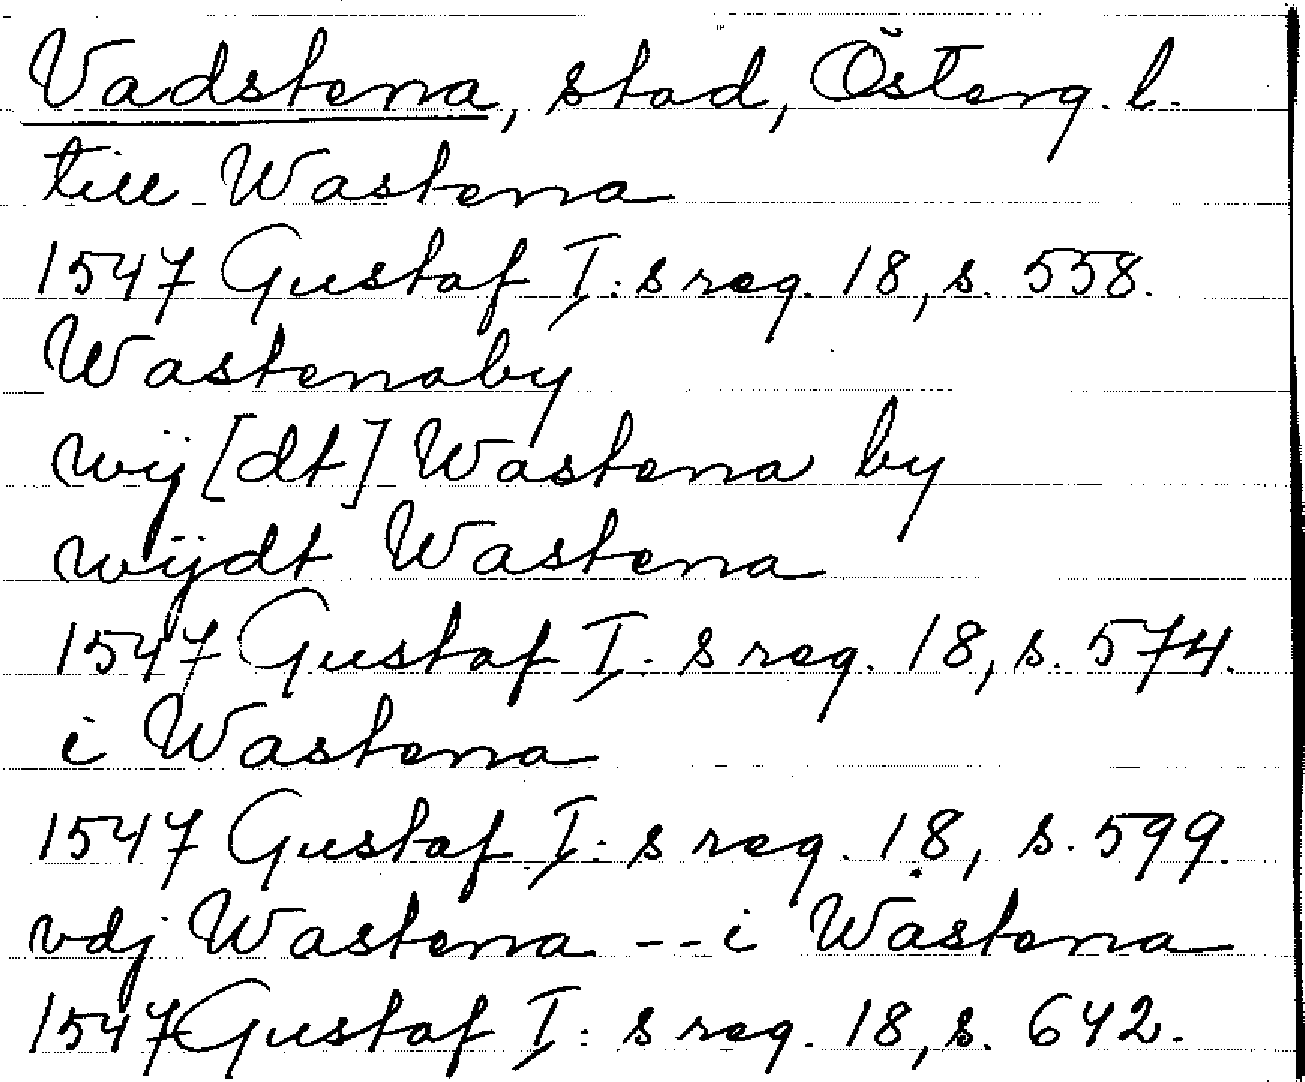 Vadstena, stad, Österg. l.
till Wastena
1547 Gustaf I:s reg. 18, s. 558.
Wastenaby
wij[dt] Wastena by
wijdt Wastena
1547 Gustaf I:s reg. 18, s. 574.
i Wastena
1547 Gustaf I:s reg. 18, s. 599.
vdj Wastena -- i Wastena
1547 Gustaf I:s reg. 18, s. 642.